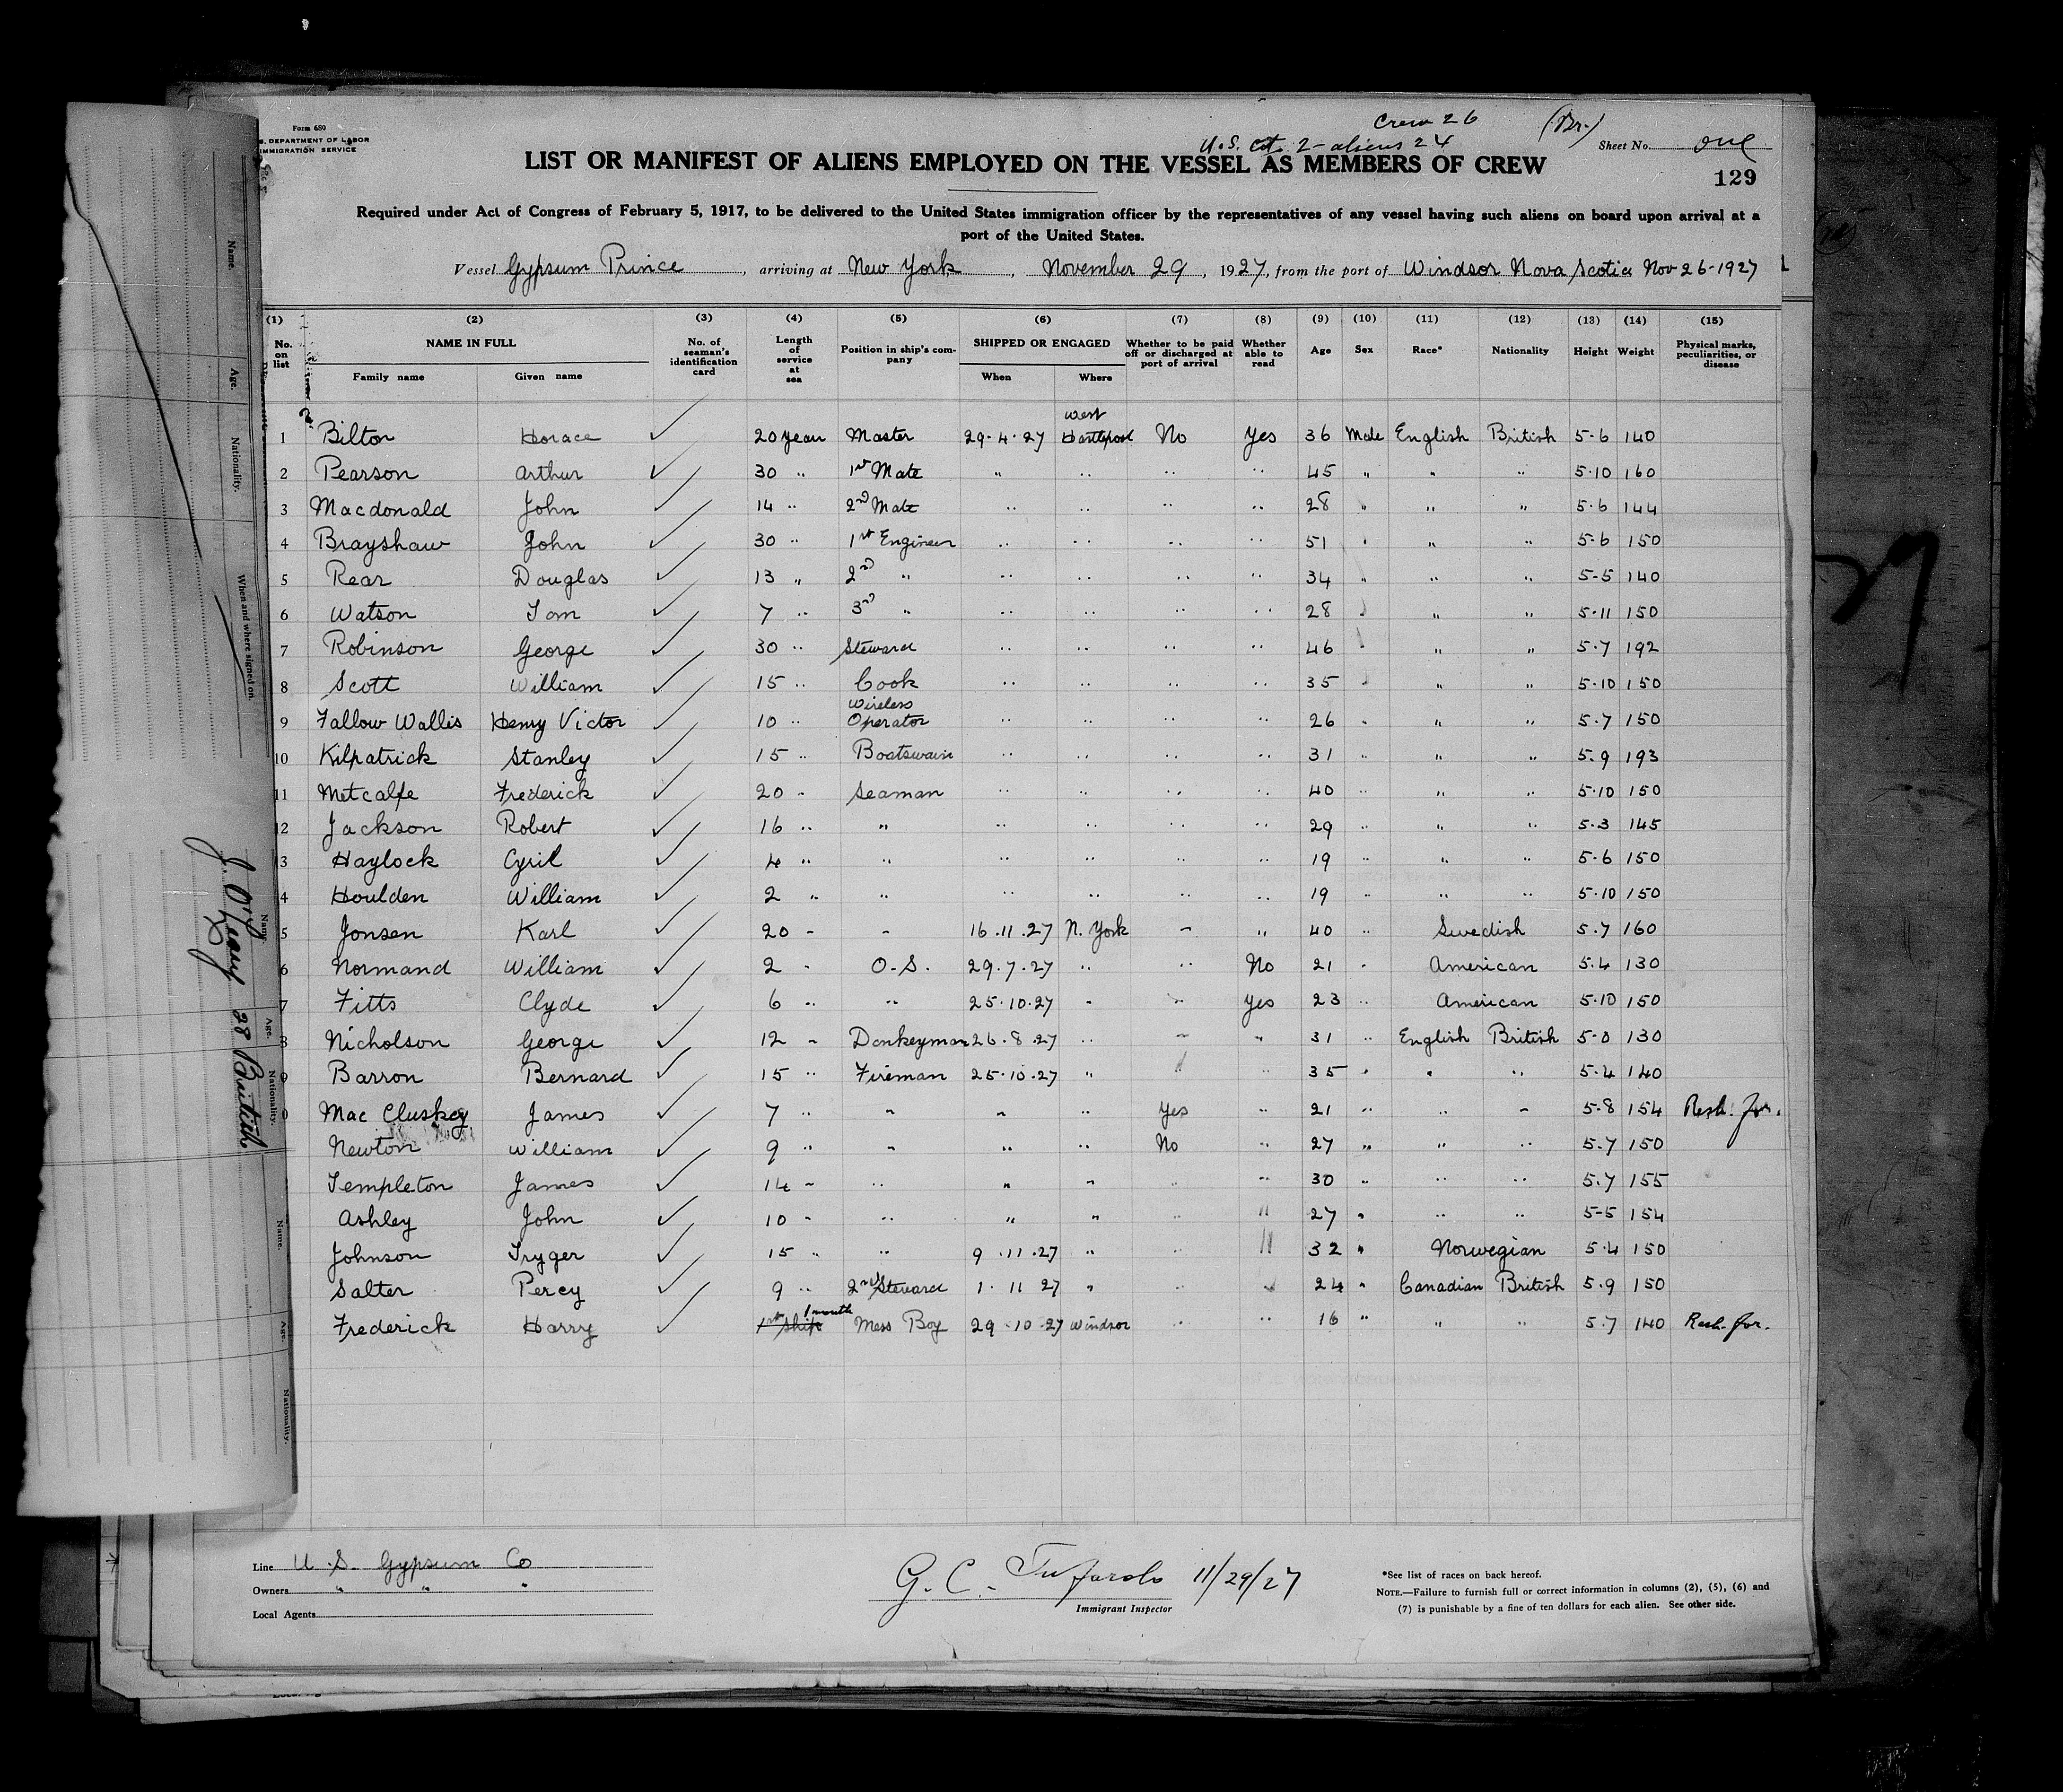 Crew 26 (Br.)
U.S. cit. 2- aliens 24
Form 680
S. DEPARTMENT OF LABOR
IMMIGRATION SERVICE
Sheet No. one
LIST OR MANIFEST OF ALIENS EMPLOYED ON THE VESSEL AS MEMBERS OF CREW
129
Required under Act of Congress of February 5, 1917, to be delivered to the United States immigration officer by the representatives of any vessel having such aliens on board upon arrival at a
port of the United States.
Vessel Gypsum Prince, arriving at New York, November 29, 1927, from the port of Windsor Nova Scotia Nov 26-1927
(1) (2) (3) (4) (5) (6) (7) (8) (9) (10) (11) (12) (13) (14) (15)
No. on list NAME IN FULL Family name Given name No. of seaman's identification card Length of service at sea Position in ship's company SHIPPED OR ENGAGED When Where Whether to be paid off or discharged at port of arrival Whether able to read Age Sex Race* Nationality Height Weight Physical marks, peculiarities, or disease
1 Bilton Horace ✓ 20 years Master 29.4.27 West Hartlepool No Yes 36 Male English British 5-6 140
2 Pearson Arthur ✓ 30 " 1st Mate " " " " 45 " " " 5.10 160
3 Macdonald John ✓ 14 " 2nd Mate " " " " 28 " " " 5.6 144
4 Brayshaw John ✓ 30 " 1st Engineer " " " " 51 " " " 5-6 150
5 Rear Douglas ✓ 13 " 2nd " " " " " 34 " " " 5-5 140
6 Watson Tom ✓ 7 " 3rd " " " " " 28 " " " 5-11 150
7 Robinson George ✓ 30 " Steward " " " " 46 " " " 5.7 192
8 Scott William ✓ 15 " Cook " " " " 35 " " " 5.10 150
9 Fallow Wallis Henry Victor ✓ 10 " Wireless Operator " " " " 26 " " " 5.7 150
10 Kilpatrick Stanley ✓ 15 " Boatswain " " " " 31 " " " 5.9 193
11 Metcalfe Frederick ✓ 20 " Seaman " " " " 40 " " " 5.10 150
12 Jackson Robert ✓ 16 " " " " " " 29 " " " 5.3 145
3 Haylock Cyril ✓ 4 " " " " " " 19 " " " 5.6 150
4 Houlden William ✓ 2 " " " " " " 19 " " " 5.10 150
5 Jonsen Karl ✓ 20 " " 16.11.27 N. York " " 40 " Swedish 5.7 160
6 Normand William ✓ 2 " O.S. 29.7.27 " " No 21 " American 5.4 130
7 Fitts Clyde ✓ 6 " " 25.10.27 " " Yes 23 " American 5.10 150
8 Nicholson George ✓ 12 " Donkeyman 26.8.27 " " " 31 " English British 5-0 130
9 Barron Bernard ✓ 15 " Fireman 25.10.27 " " " 35 " " " 5.4 140
0 Mac Cluskey James ✓ 7 " " " " Yes " 21 " " " 5-8 154 Resh. for.
Newton William ✓ 9 " " " " No " 27 " " " 5.7 150
Templeton James ✓ 14 " " " " " " 30 " " " 5.7 155
Ashley John ✓ 10 " " " " " " 27 " " " 5-5 154
Johnson Tryger ✓ 15 " " 9.11.27 " " " 32 " Norwegian 5.4 150
Salter Percy ✓ 9 " 2nd Steward 1.11 27 " " " 24 " Canadian British 5.9 150
Frederick Harry ✓ 1st Ship 1 month Mess Boy 29.10.27 Windsor " " 16 " " " 5.7 140 Resh. for.
Line U.S. Gypsum Co
Owners " " "
Local Agents
G. C. Tufarolo 11/29/27
Immigrant Inspector
*See list of races on back hereof.
NOTE.—Failure to furnish full or correct information in columns (2), (5), (6) and
(7) is punishable by a fine of ten dollars for each alien. See other side.
Name. Age. Nationality. When and where signed on.
J. O'Leary 28 British
Name. Age. Nationality.
Name. Age. Nationality.